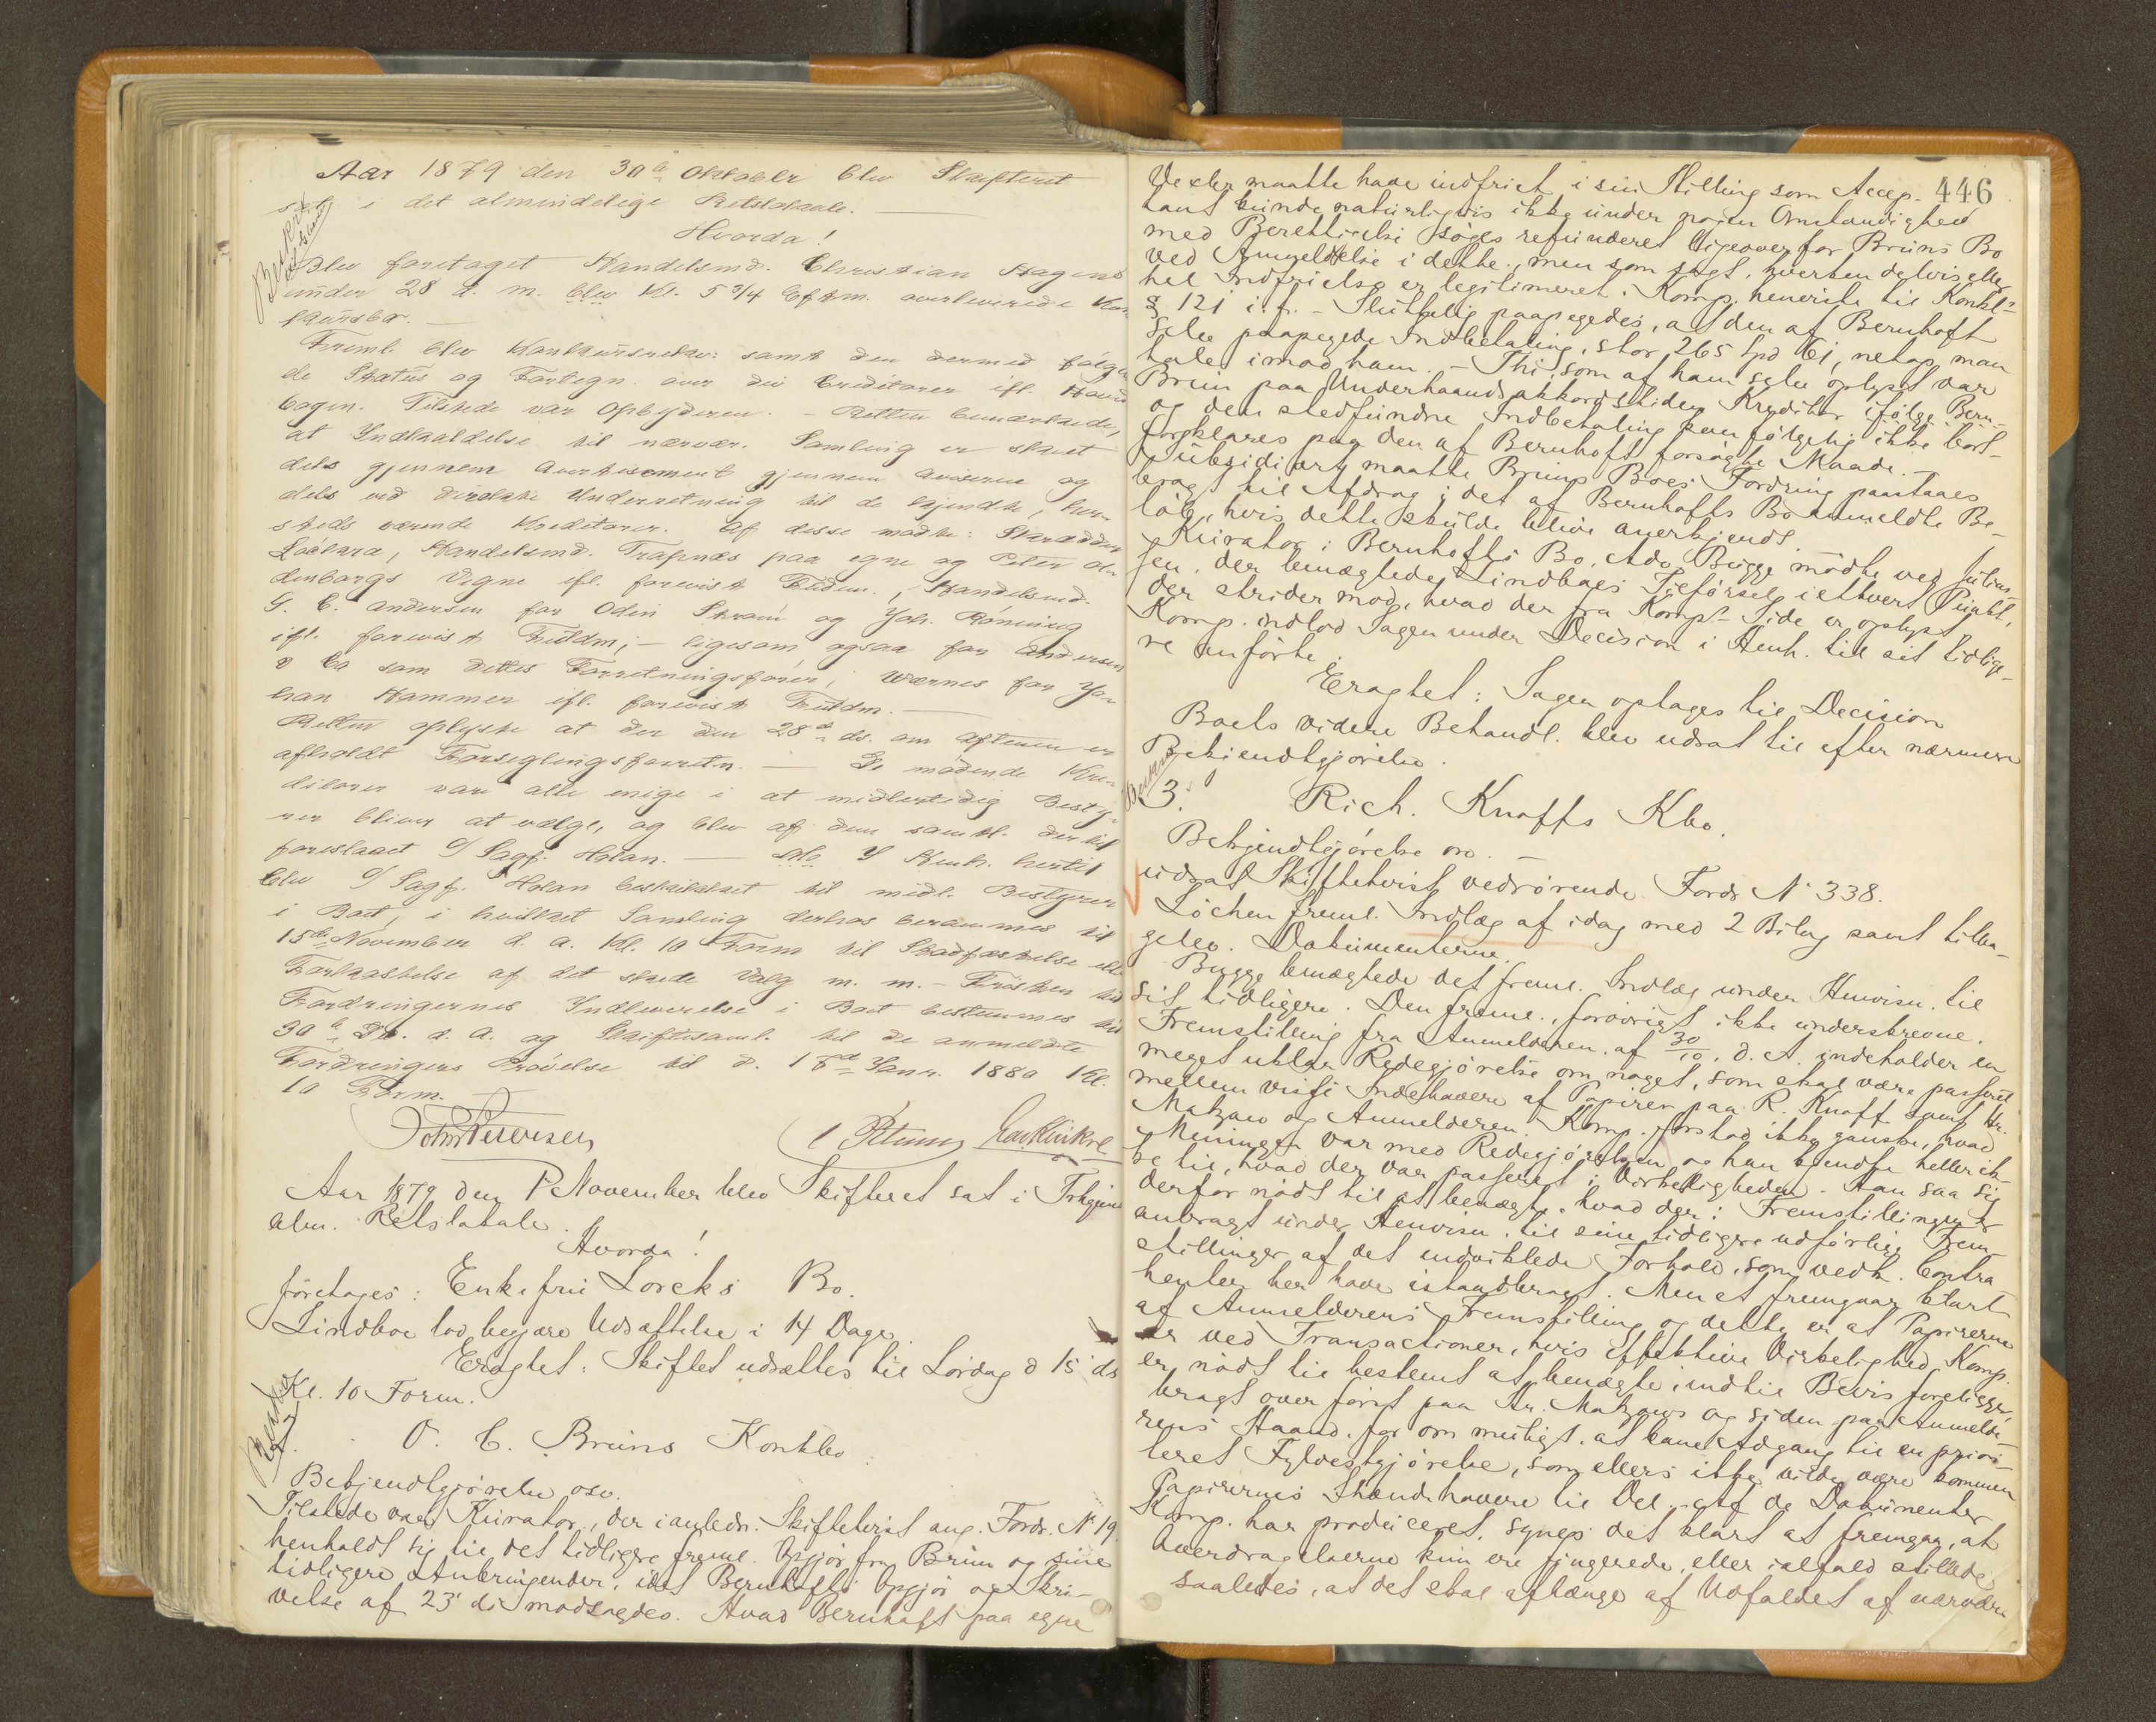 Aar 1879 den 30te Oktober blev Skifteret
sat i det almindelige Retslokale.
Hvorda!
Blev foretaget Handelsmd. Christian Hagens
under 28 d. m. blev Kl. 5 3/4 Eftm. overleverede Kon-
kursbo.
Freml. blev Konkurs samt den dermed følgen
de Status og Fortegn. over de Creditorer ifl. Hand
bogen. Tilstede var Opbyderen. - Retten bemærkede,
at Indkaldelse til nærvær. Samling er skeet
dels gjennem Avertisement gjennem Aviserne og
dels ved direkte Underretning til de kjendte, her-
steds værende Kreditorer. Af disse mødte: Skrædder
Handelsmd. Trapnæs paa egne og Peter
denborgs Vegne ifl. forevist Fuldm., Handelsmd.
G. C. Andersen for Odin Strøm og Joh. Rønning
ifl. forevist Fuldm; - ligesom ogsaa for Andersen
& Co som dettes Forretningsfører; Wærnes for Jo-
han Hammer ifl. forevist Fuldm.
Retten oplyste at der den 28de ds. om Aftenen er
afholdt Forseglingsforretn. - De mødende Kre-
ditorer vare alle enige i at midlertidig Besty-
rer bliver at vælge, og blev af dem samtl. dertil
foreslaaet O/Sagf. Holan. - I Henh. hertil
blev O/Sagf. Holan beskikket til midl. Bestyrer
i Boet, i hvilket Samling derhos berammes til
15de November d. A. Kl. 10 Form til Stadfæstelse ell.
Forkastelse af det skede Valg m. m. - Fristen til
Fordringernes Indleverelse i Boet bestemmes til
30te d. A. og Skiftesaml. til de anmeldte
Fordringers Prøvelse til d. 18de Janr. 1880 Kl.
10 Form.
Aar 1879 den 1ste November blev Skifteret sat i Trhjems
alm. Retslokale.
Hvorda!
foretages: Enkefru Lorcks Bo.
Lindboe lod begjære Udsættelse i 14 Dage.
Eragtet: Skiftet udsættes til Lørdag d 15 ds
Kl. 10 Form.
O. C. Bruns Konkbo
Bekjendtgjørelse osv.
Tilstede var Kurator, der i anledn. Skiftetvist ang. Fordr. No 19
henholdt sig til det tidligere freml. Opgjør fra Bruun og sine
tidligere Anbringender, idet Bernhofts Opgjør og Skri-
velse af 23' ds modsagdes. Hvad Bernhoft paa egne
446
Vexler maatte have indfriet i sin Stilling som Accep-
tant kunde naturligvis ikke under nogen Omstændighed
med Berettigelse søges refunderet ligeoverfor Bruns Bo
ved Anmeldelse i dette, men som sagt, hverken delvis eller
hel Indfrielse er legitimeret. Komp. henviste til Konkl-
§ 121 i. f. - Sluttelig paapegedes, at den af Bernhoft
selv paapegede Indbetaling, stor 265 Spd 61, netop maa
tale imod ham. - Thi, som af ham selv oplyst var
Bruun paa Underhaandsakkordstiden Kreditor ifølge Bern-
og den stedfundne Indbetaling kan følgelig ikke bort-
forklares paa den af Bernhoft forsøgte Maade. -
Subsidiært maatte Bruns Boes Fordring paastaaes
bragt til Afdrag i det af Bernhofts Bo anmeldte Be-
løb, hvis dette skulde blive anerkjendt.
Kurator i Bernhofts Bo, Adv. Bugge mødte ved
sen, der benægtede Lindboes Tilførsel i ethvert Punkt,
der strider mod, hvad der fra Komps Side er oplyst.
Komp. indlod Sagen under Decision i Henh. til sit tidlige-
re anførte.
Eragtet: Sagen optages til Decision
Boets videre Behandl. blev udsat til efter nærmere
Bekjendtgjørelse.
3. Rich. Knoffs Kbo.
Bekjendtgjørelse osv. -
udsat Skiftetvist vedrørende Fordr No 338.
Løchen freml. Indlæg af idag med 2 Bilag samt tilba-
gelev. Dokumenterne.
Bugge benægtede det freml. Indlæg under Henvisn. til
sit tidligere. Den freml., forøvrigt ikke underskrevne.
Fremstilling fra Anmelderen, af 30/10. d. A. indeholder en
meget uklar Redegjørelse om noget, som skal være passeret
mellem visse Indehavere af Papirer paa R. Knoff samt Hr.
Matzow og Anmelderen. Komp. forstod ikke ganske, hvad
Meningen var med Redegjørelsen og han kjendte heller ik-
ke til, hvad der var passeret i Virkeligheden. Han saa sig
derfor nødt til at benægte, hvad der i Fremstillingen er
anbragt under Henvisn. til sine tidligere udførlige Frem-
stillinger af det indviklede Forhold, som vedk. Contra-
henter her have istandbragt. Men et fremgaar klart
af Anmelderens Fremstilling og dette er at Papirerne
er ved Transactioner, hvis effektive Virkelighed Komp.
er nødt til bestemt at benægte, indtil Bevis foreligger,
bragt over først paa Hr. Matzows og siden paa Anmelde-
rens Haand, for om muligt at bane Adgang til en priori-
teret Fyldestgjørelse, som ellers ikke vilde være kommen
Papirernes Ihændehavere til Del. - Af de Dokumenter
Komp. har produceret, synes det klart at fremgaa, at
Overdragelserne kun ere fingerede, eller ialfald stillede
saaledes, at det skal afhænge af Udfaldet af nærvær.